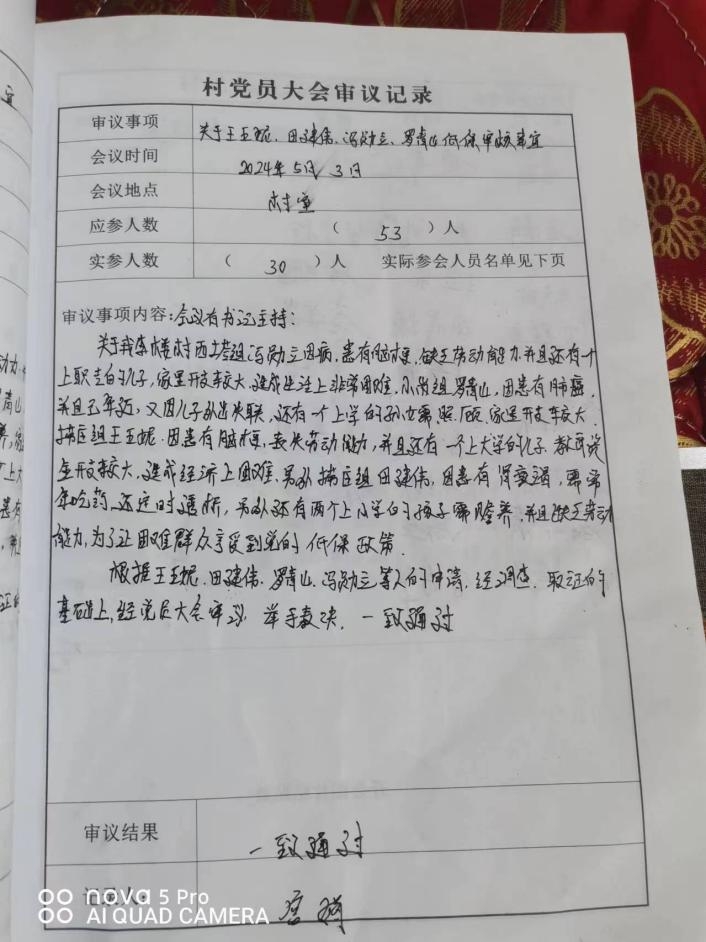 村党员大会审议记录
审议事项 关于王玉妮、田建伟、冯勋立、罗青山低保审核事宜
会议时间 2024年5月3日
会议地点 村室
应参人数 （ 53 ）人
实参人数 （ 30 ）人 实际参会人员名单见下页
审议事项内容：会议有书记主持：
关于我李楼村西塔组冯勋立因病，患有脑梗，缺乏劳动能力并且还有一个
上职高的儿子，家里开支较大，造成生活上非常困难，小岗组罗青山，因患有肺癌，
并且已年迈，又因儿子外出失联，还有一个上学的孙女需照顾，家里开支较大，
王玉妮，因患有脑梗，丧失劳动能力，并且还有一个上大学的儿子，教育资
金开支较大，造成经济上困难，另外 田建伟，因患有肾衰竭，需常
年吃药，还定时透析，另外还有两个上小学的孩子需赡养，并且缺乏劳动
能力，为了让困难群众享受到党的低保政策。
根据王玉妮、田建伟、罗青山、冯勋立等人的申请，经调查、取证的
基础上，经党员大会审议，举手表决，一致通过
审议结果 一致通过
记录人：
nova 5 Pro
AI QUAD CAMERA